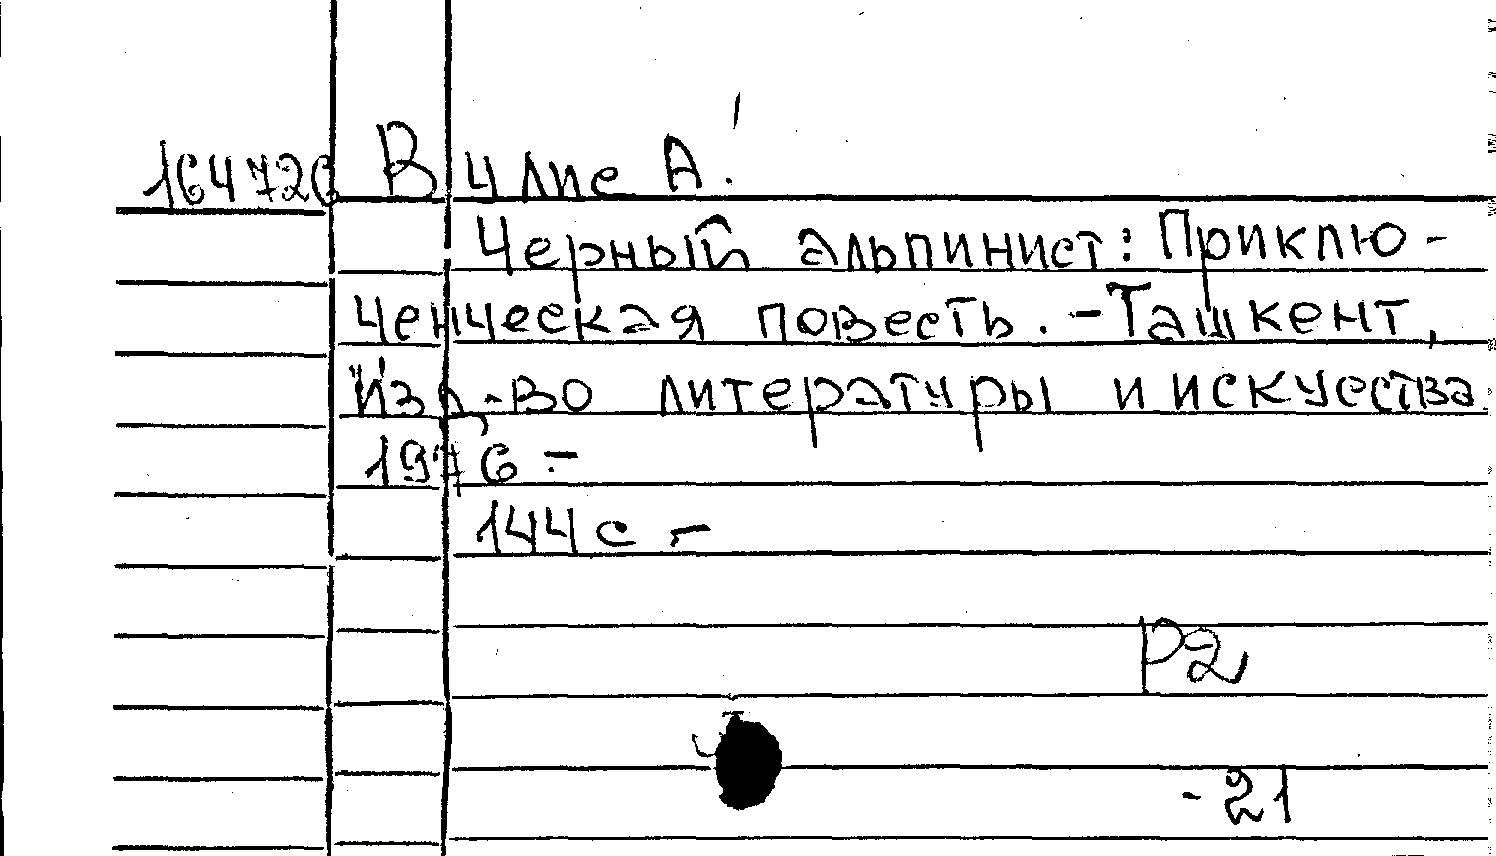 164726 Вулис А.
Черный альпинист: Приклю-
ченческая повесть. - Ташкент,
Изд-во литературы и искусства
1976 -
144 с -
Р2
-21